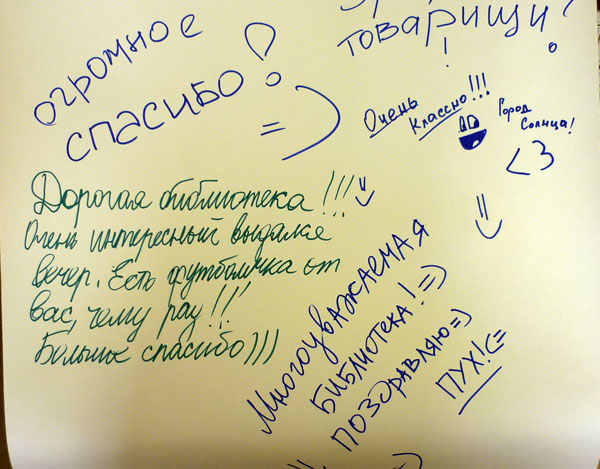 товарищи!
огромное
спасибо!
=)
Очень
классно!!!
Город
Солнца!
<3
Дорогая библиотека!!!
Очень интересный выдался
вечер. Есть футболичка от
вас, чему рау!!!
Больше спасибо)))
Многоуважаемая
библиотека! =)
поздравляю =)
ПУХ! (=